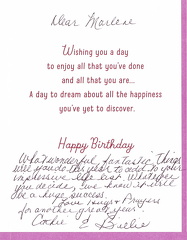 Dear Marlene
Wishing you a day
to enjoy all that you've done
and all that you are...
A day to dream about all the happiness
you've yet to discover.
Happy Birthday
What wonderful, fantastic things
will you do this year to add to your
impressive life list. Whatever
you decide, we know it will
be a huge success.
Love Hugs & Prayers
for another great year!
Cookie & Billie